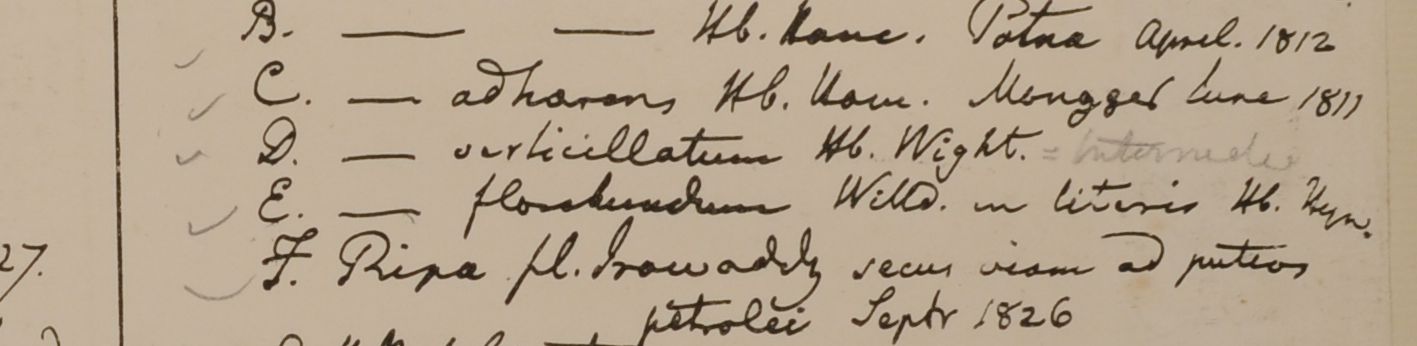 B. — — Hb. Ham. Patna April. 1812
C. — adhærens Hb. Ham. Mongger June 1811
D. — verticillatum Hb. Wight. = Intermedia
E. — floribundum Willd. in literis Hb. Heyn.
27.
F. Ripa fl. Irawaddy secus viam ad puteos
petrolei Septr 1826